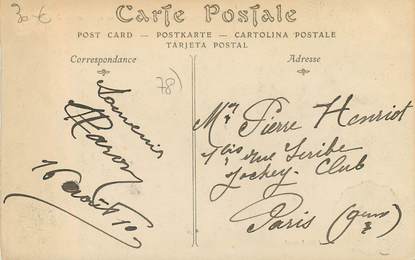 30 €
Carte Postale
POST CARD — POSTKARTE — CARTOLINA POSTALE
TARJETA POSTAL
Correspondance
Adresse
78)
Souvenir
16 août 10
Mr Pierre Henriot
1bis rue Scribe
Jockey-Club
Paris